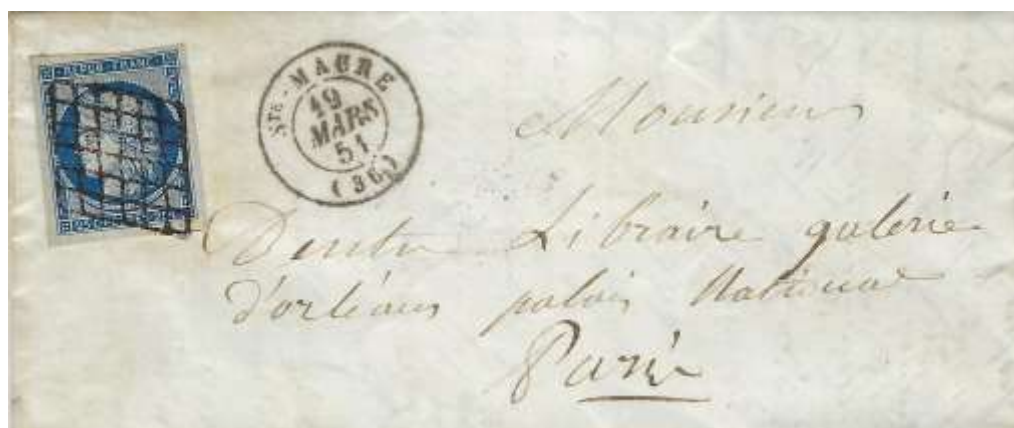 REPUB. FRANC.
STE-MAURE
19
MARS
51
(36)
Monsieur
Dentu Libraire galerie
d'orléans palais National
Paris